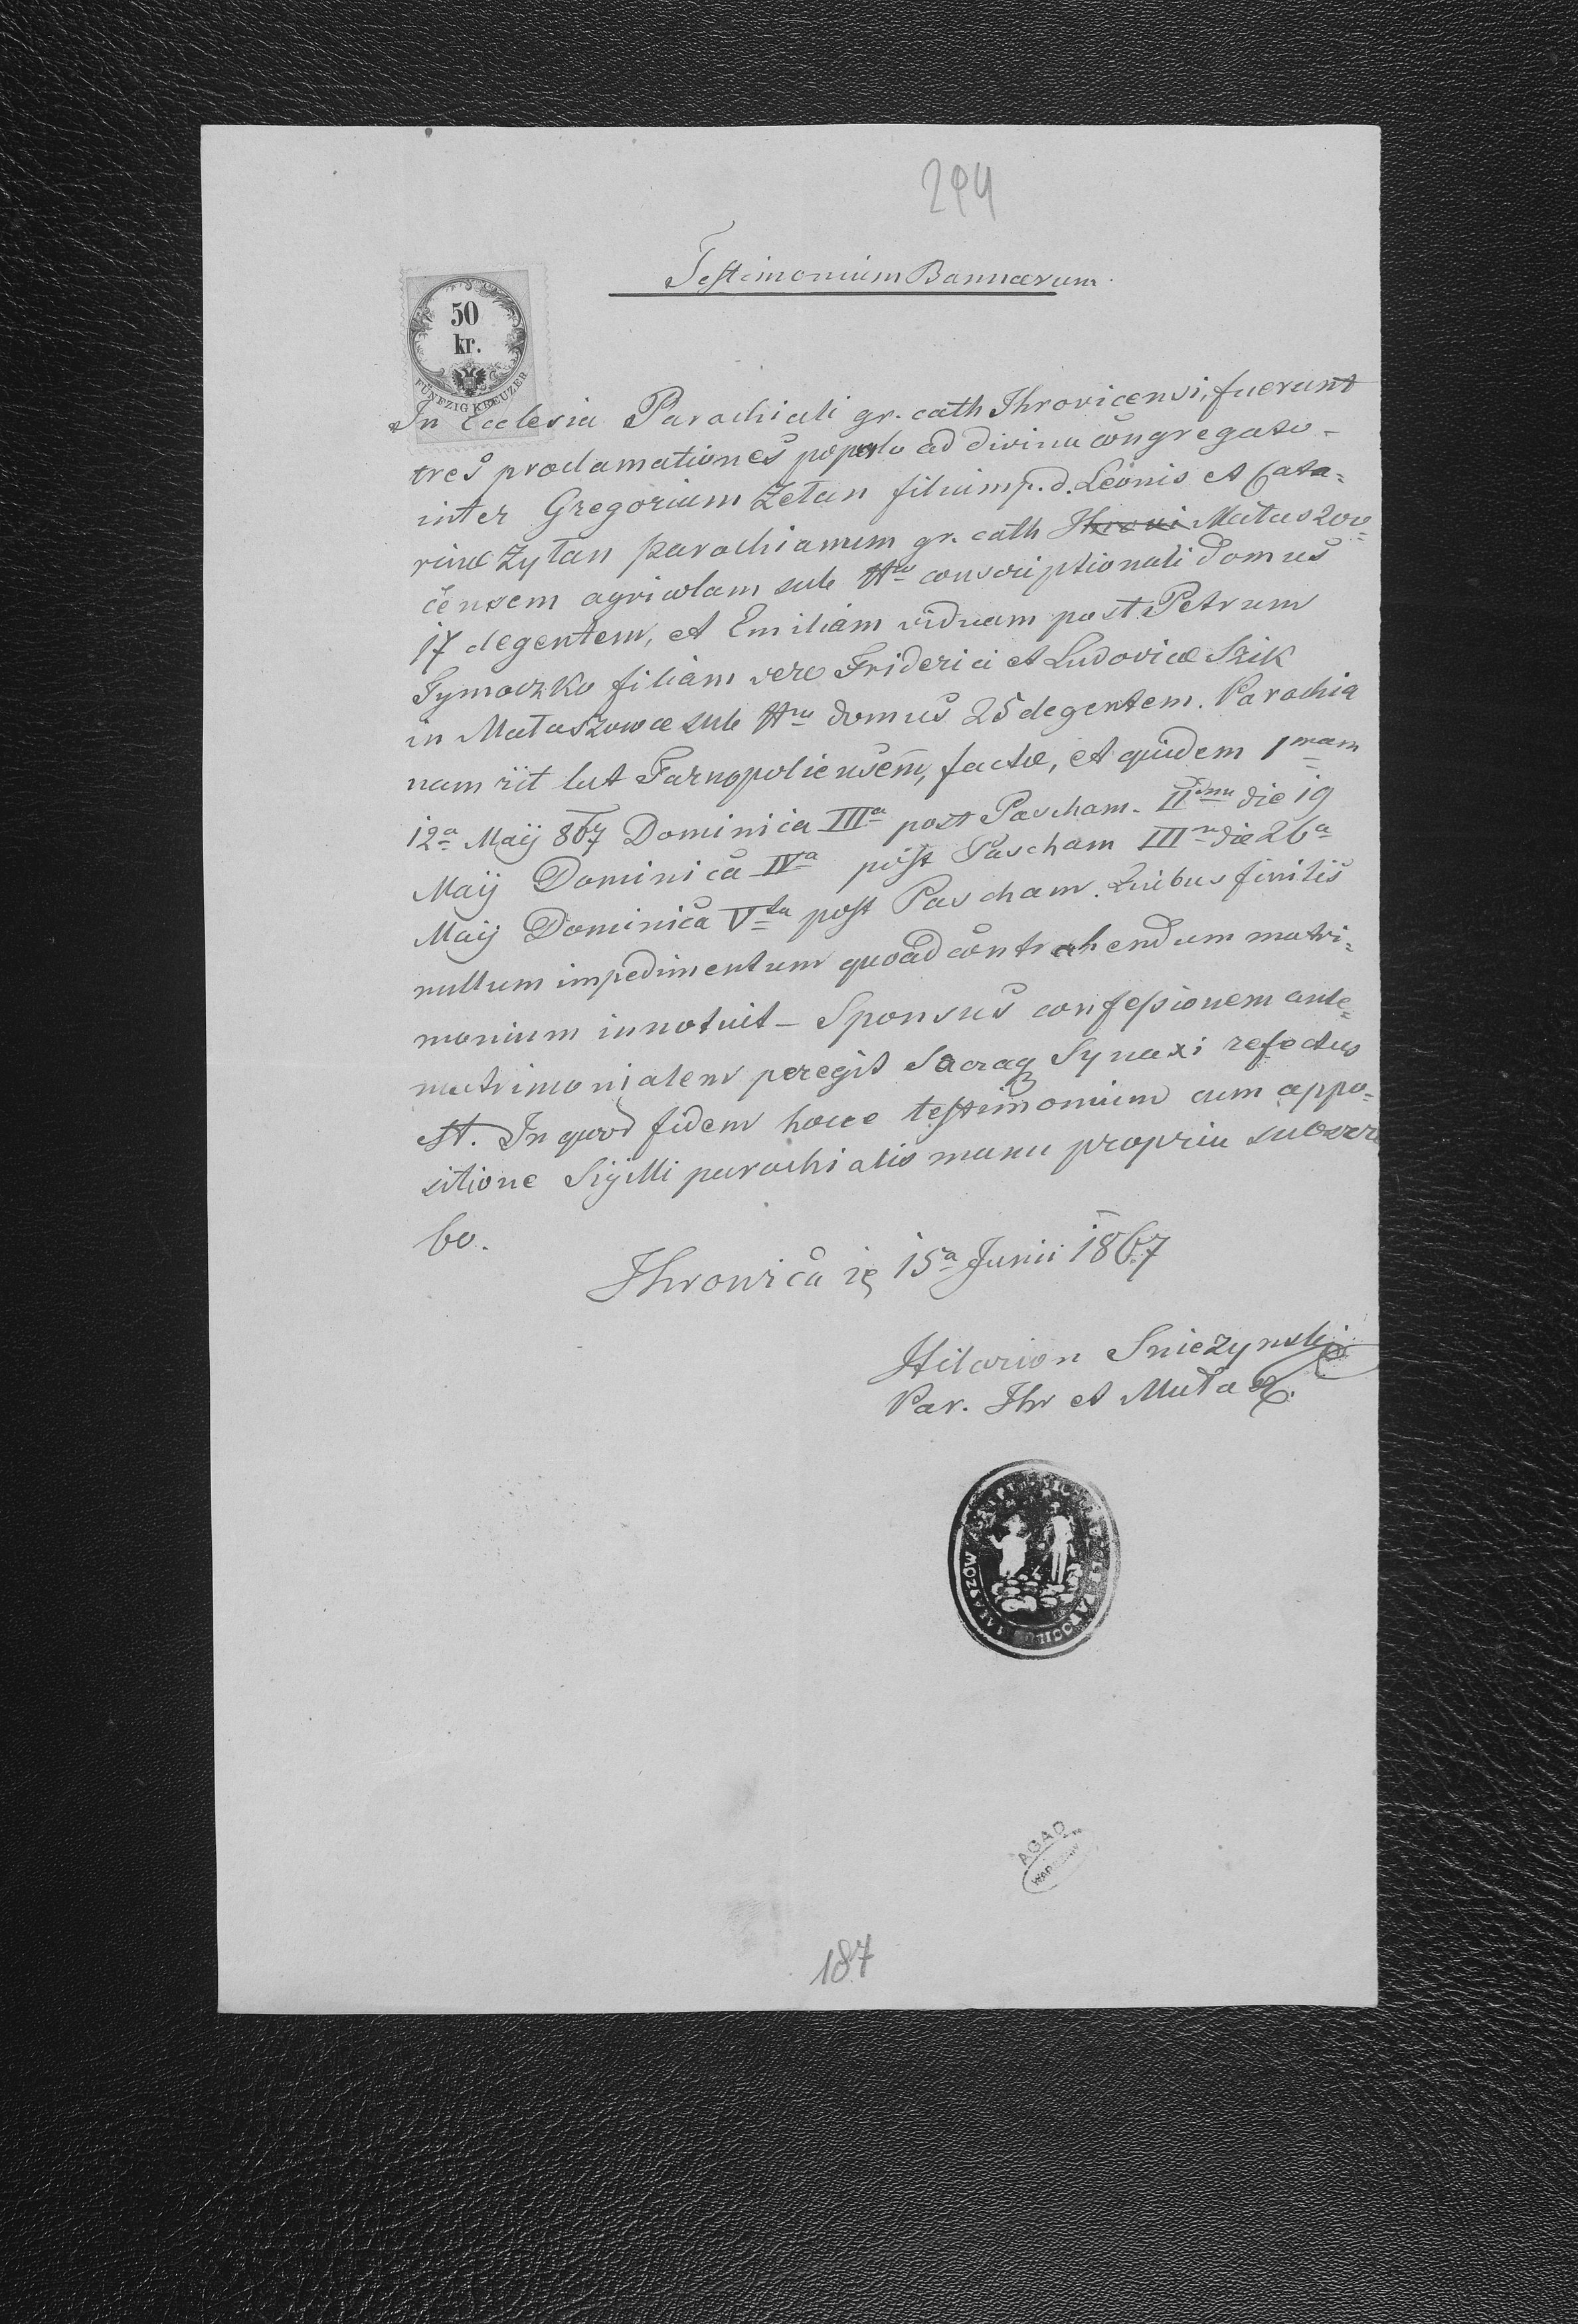 294
Testimonium Bannorum
50
kr.
FÜNFZIG KREUZER
In Ecclesia Parochiali gr. cath Ihrovicensi, fuerunt
tres proclamationes populo ad divina congregato -
inter Gregorium Zełan filium p. d. Leonis et Cata=
rinæ Zyłan parochianum gr. cath Ihrovi Matuszow=
censem agricolam sub Nro conscriptionali domus
17 degentem, et Emiliam viduam post Petrum
Tymoczko filiam vero Friderici et Ludovicæ Szik
in Małaszowce sub Nro domus 25 degentem. Parochia
nam rit lat Tarnopoliensem, factæ, et quidem 1mam
12a Maij 867 Dominica IIIa post Pascham. IIdum die 19
Maij Dominica IVa post Pascham IIIa die 26a
Maij Dominica Vta post Pascham. Quibus finitis
nullum impedimentum quoad contrahendum matri=
monium innotuit - Sponsus confessionem ante=
matrimonialem peregit Sacraq Synaxi refectus
est. In quod fidem hocce testimonium cum appo=
sitione Sigilli parochialis manu propria subscri
bo.
Ihrowica 15a Junii 1867
Hilarion Sniezynski
Par. Ihr et Małasz.
AGAD
187